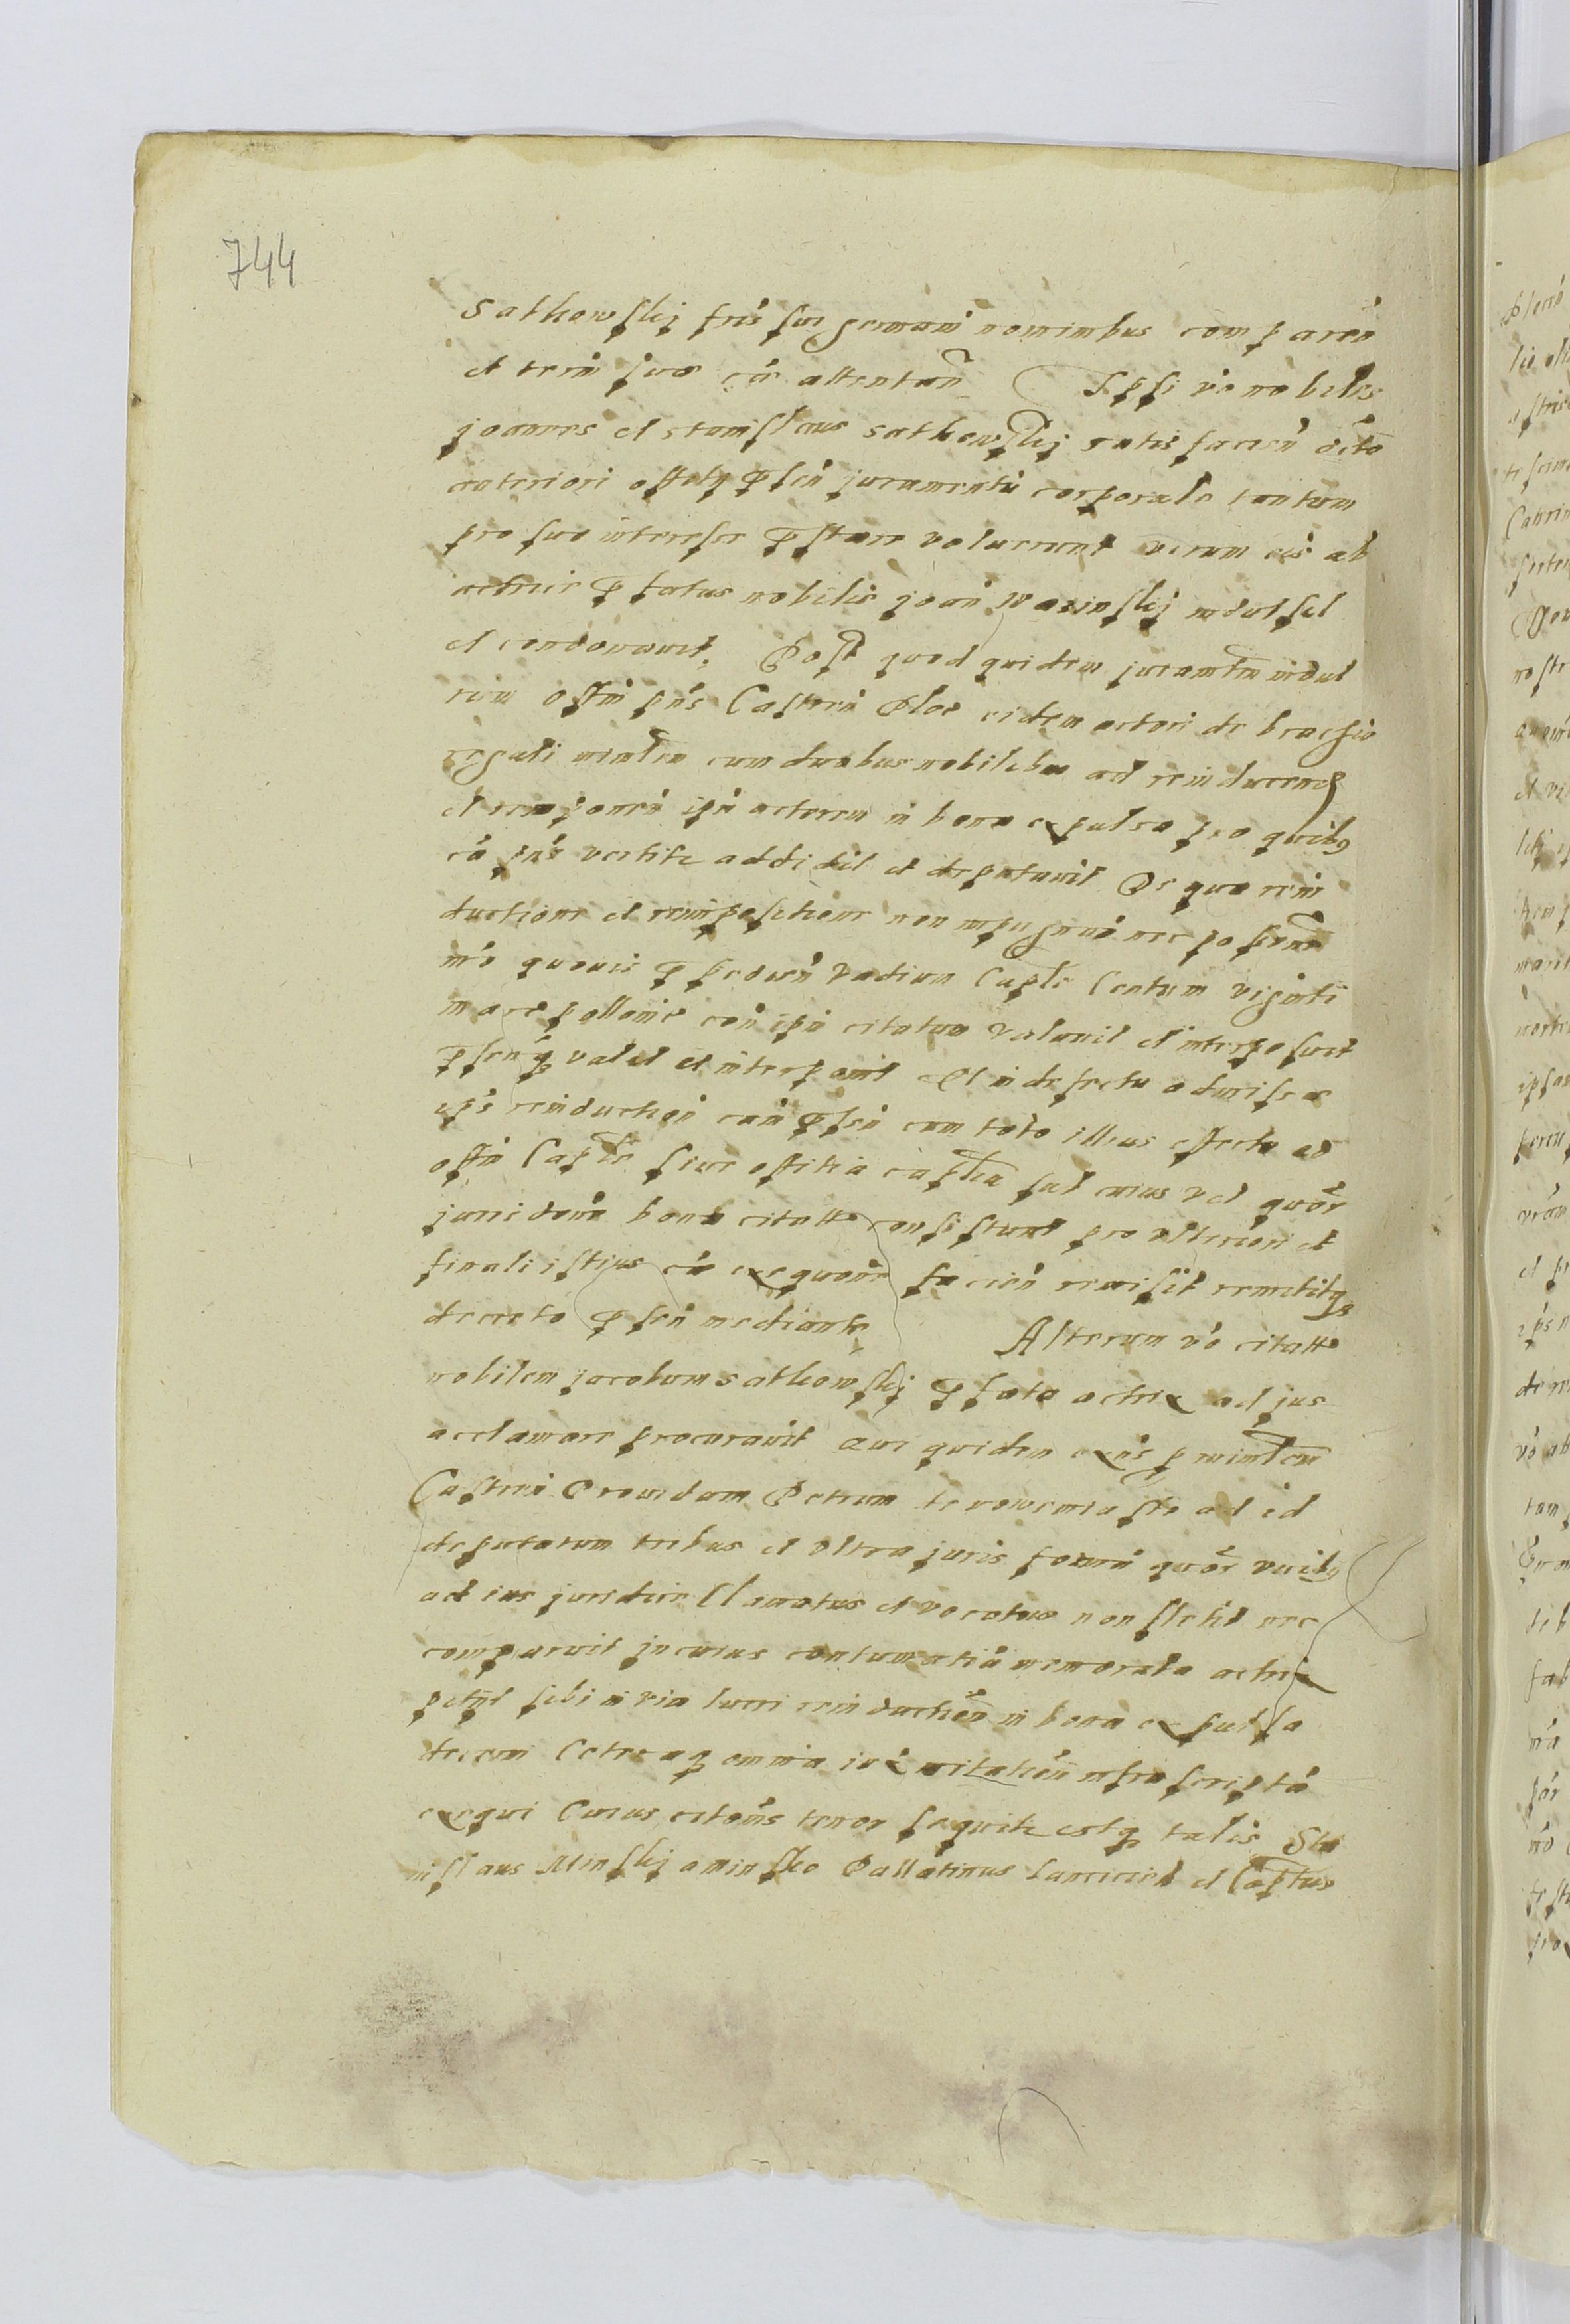 744
Sathowskj frīs sui germani nominibus comparen
et termi suos cās attentan̄ Ipsi v̄o nobiles
Joannes et Stanislaus Sathowskj satisfacien̄ dćto
anteriori offitij p̄sen̄ juramentū corporale tantum
pro suo interesse p̄stare voluerunt verum eis ab
actrice p̄fatus nobilis Joan̄ indulsit
et condonavit. Post quod quidem juramtm̄ indul
tum offm̄ pn̄s Castren̄ Ploc eidem actori de brachio
regali minlem cum duabus nobilibus ad reinducend
et reimponen̄ ipm̄ actorem in bona expulsa pro quibus
cā pn̄s vertitr addidit et deputavit De qua rein
ductione et reimpositione non impugnan̄ nec
mō quovis p̄pedien̄ vadium Caple Centum viginti
marc pollonic con̄ ipm̄ citatum valavit et interposuit
p̄senq valat et interponit Et in defectu
ips̄ reinduction̄ cām p̄sen̄ cum toto illius effectu ad
offm̄ Caple sive offitia caplia sub cuius vel quor̄
jurisdone bona citatti consistunt pro ulteriori et
finali istius cā exequōne facien̄ remisit remittitqs
decreto p̄sen̄ mediante Alterum v̄o citatte
nobilem Jacobum Sathowskj p̄fata actrix ad jus
acclamare procuravit Qui quidem exn̄s p minlem
Castren̄ Providum Petrum de ad id
deputatum tribus et ultra juris formā quor̄ vicibus
ad ius juridice Clamatus et vocatus non stetit nec
comparuit In cuius contumatiā memorata actrix
petijt sibi in via lucri reinduction̄ in bona expulsa
decerni Ceteraq omnia iux citation̄ infrascriptā
exequi Cuius citōnis tenor sequitr estq talis Sta
nislaus Minskj a Minsko Pallatinus Lancicien̄ et Captus